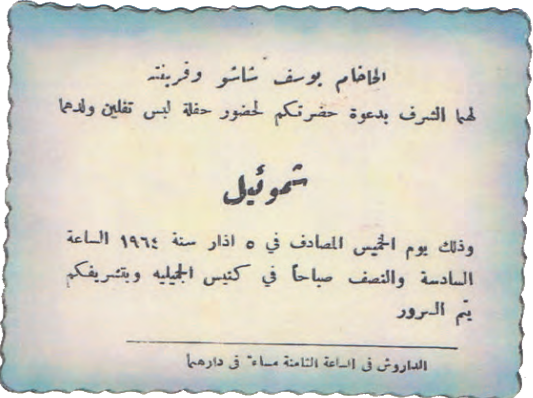 الحاخام يوسف شاشو وقرينته
لهما الشرف بدعوة حضرتكم لحضور حفلة لبس تفلين ولدهما
شموئيل
وذلك يوم الخميس المصادف في ٥ اذار سنة ١٩٦٤ الساعة
السادسة والنصف صباحاً في كنيس الجميليه وبتشريفكم
يتم السرور
الداروش في الساعة الثامنة مساءً في دارهما